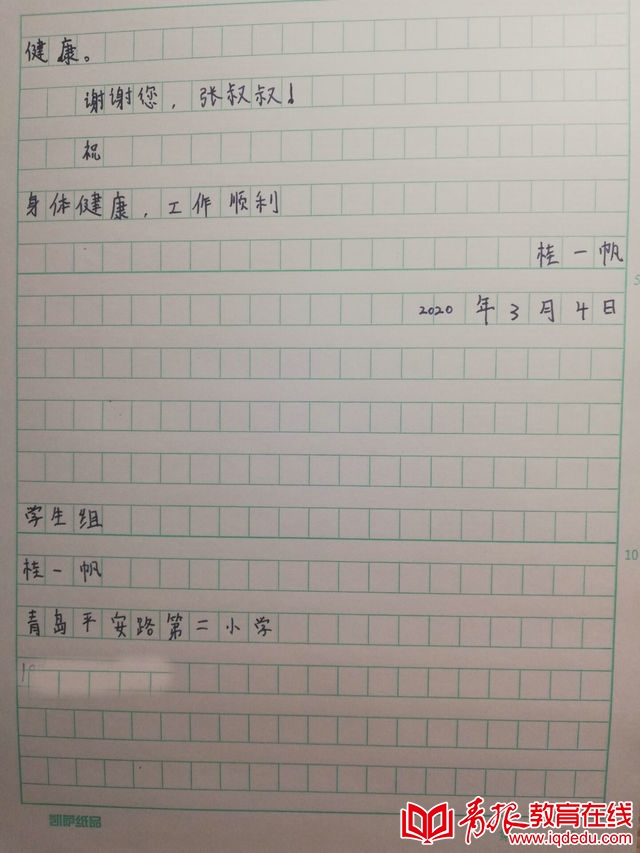 健康。
谢谢您，张叔叔！
祝
身体健康，工作顺利
桂一帆
2020年3月4日
5
学生组
10
桂一帆
青岛平安路第二小学
凯萨纸品
青报教育在线
www.iqdedu.com